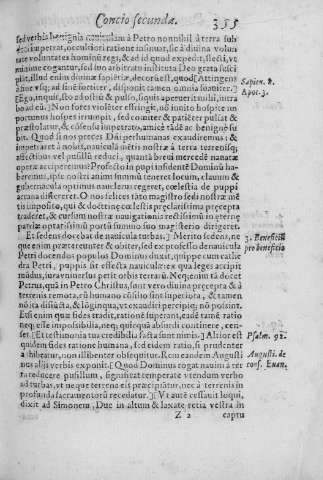 Concio secunda. 355
sed verbis benignis nauiculam à Petro nonnihil à terra sub
duci imperat, occultiori ratione insinuat, sic à diuina volun
tate voluntates hominū regi, & ad id quod expedit, flecti, vt
minime cogantur, sed suo arbitrato instituta Deo grata susci
piāt, illud enim diuinæ sapiētiæ, decorū est, quod [Attingens
à fine vsq; ad finē fortiter, disponit tamen omnia suauiter.]
Ego, inquit, sto ad ostiū & pulso, si quis aperuerit mihi, intra
bo ad eū.] Non fores violēter effringit, nō inuito hospite im
portunus hospes irrumpit, sed comiter & patiēter pulsat &
præstolatur, & cōsensu impetrato, amicè
bit. Quod si nos preces Dei per humanas exaudiremus: &
impetrare à nobis, nauiculā mētis nostræ à terra terrenisq;
affectibus vel pusillū reduci, quantā breui mercedē nauatæ
operæ acciperemus? Profecto in puppi insidētē Dominū ha-
beremus, ipse nostri animi summū teneret locum, clauum &
gubernacula optimus nauclerus regeret, cœlestia de puppi
arcana dissereret. O nos felices tāto magistro sedi nostræ mē
tis imposito, qui & docēte cœlestia præclarissima præcepta
traderet, & cursum nostræ nauigationis rectissimū in æternę
patriæ optatissimū portū summo suo magisterio dirigeret.
Et sedens docebat de nauicula turbas.] Merito sedens, ne
que enim prætereuntē & obiter, sed ex professo de nauicula
Petri docendos populos Dominus duxit, quippe cum cathe
dra Petri, puppis sit effecta nauiculæ: ex qua leges accipit
mūdus, iura vniuersus petit orbis terrarū. Neq; enim tā docet
Petrus, quā in Petro Christus, sunt vero diuina præcepta & à
terrenis remota, cū humano cōsilio sint superiora, & tamen
nō ita disiūcta, & lōginqua, vt exaudiri percipiq; nō possint.
Etsi enim quæ fides tradit, ratione superant, eadē tamē ratio
neq; esse impossibilia, neq; quicquā absurdi continere, cen-
set [Et testimonia tua credibilia facta sunt nimis.] Altior est
quidem fides ratione humana, sed eidem ratio, si prudenter
adhibeatur, non illibenter obsequitur. Rem eandem Augusti
nus alijs verbis exponit. [Quod Dominus rogat nauim à ter
ra reducere pusillum, significat temperate vtendum verbo
ad turbas, vt neque terrena eis præcipiātur, nec à terrenis in
profunda sacramentorū recedatur.] [Vt autē cessauit loqui,
dixit ad Simonem, Duc in altum & laxate retia vestra in
Z 2 captu
Sapien. 8.
Apoc. 3.
3. Beneficiū
pro beneficio
Psalm. 92.
Augusti. de
cons. Euan.